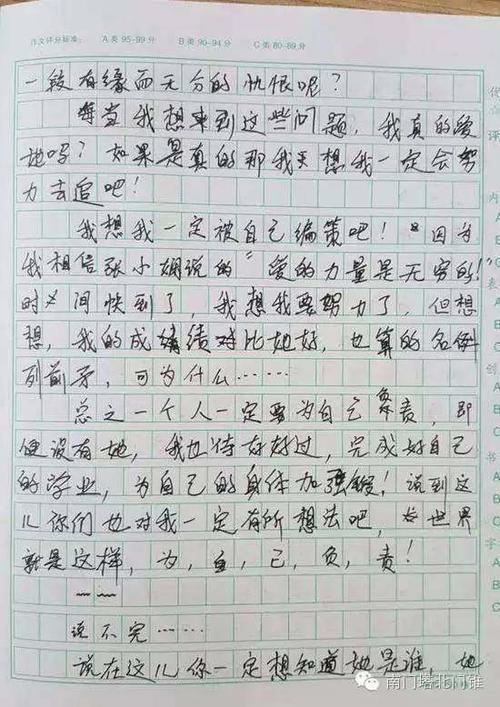 作文评分标准： A类 95-99分 B类 90-94分 C类 80-89分
一段有缘而无分的忧恨呢？
每当我想来到这些问题，我真的爱
她吗？如果是真的那我天想我一定会努
力去追吧！
我想我一定被自己编策吧！因为
我相信张小娴说的“爱的力量是无穷的！
时间快到了，我想我要努力了，但想
想，我的成绩对比她好，也算的名例
列前矛，可为什么……
总之一个人一定要为自己负责，即
便没有她，我也待好好过，完成好自己
的学业，为自己的身体加强锻！说到这
儿你们也对我一定有所想法吧，世界
就是这样，为，自，己，负，责！
——
说不完……
说在这儿你一定想知道她是谁，她
优
评
内
A
B
C
表
A
B
C
创
A
B
C
书
A
B
C
字
A
B
C
南门塔北门锥